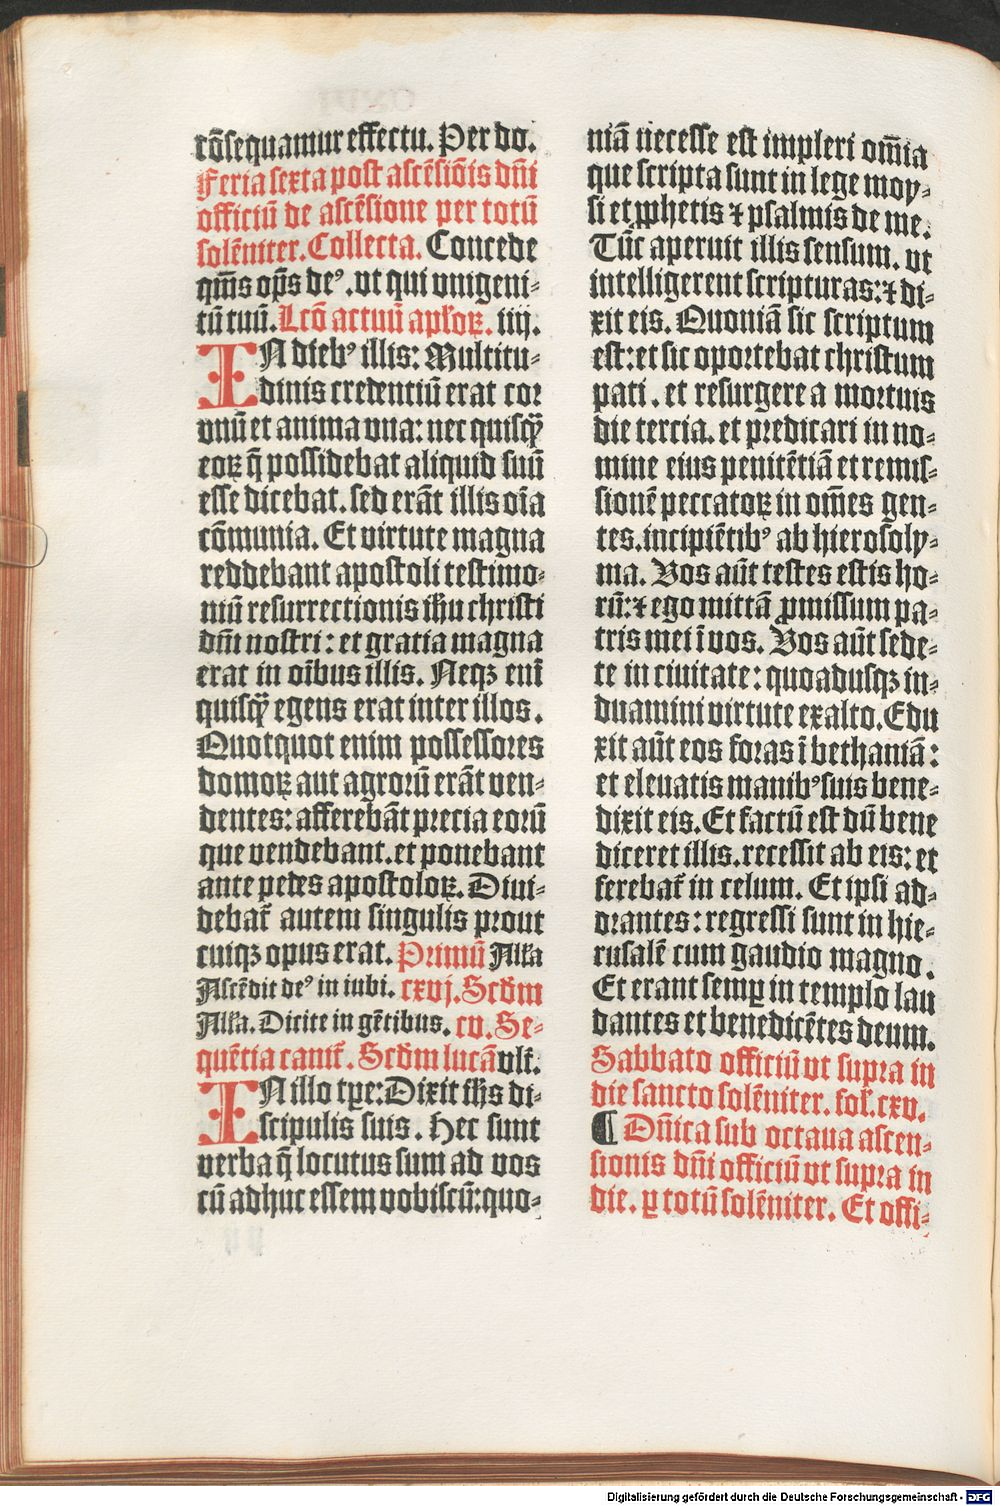 cōsequamur effectu. Per do.
Feria sexta post ascēsiōis dn̄i
officiū de ascēsione per totū
solēniter. Collecta. Concede
qm̄s op̄s deꝰ. vt qui vnigeni⸗
tū tuū. Lcō actuū apl̄oꝝ. iiij.
IN diebꝰ illis: Multitu⸗
dinis credentiū erat cor
vnū et anima vna: nec quisqȝ̄
eoꝝ q̄ possidebat aliquid suū
esse dicebat. sed erāt illis oīa
cōmunia. Et virtute magna
reddebant apostoli testimo⸗
niū resurrectionis ih̄u christi
dn̄i nostri: et gratia magna
erat in oībus illis. Neqꝫ enī
quisqȝ̄ egens erat inter illos.
Quotquot enim possessores
domoꝝ aut agrorū erāt ven⸗
dentes: afferebāt precia eorū
que vendebant. et ponebant
ante pedes apostoloꝝ. Diui⸗
debat̄ autem singulis prout
cuiqꝫ opus erat. Primū Alla
Ascēdit deꝰ in iubi. cxvj. Scd̄m
Alla. Dicite in gētibus. cv. Se⸗
quētia canit̄. Scd̄m lucā vlt̄.
IN illo tꝑe: Dixit ih̄s di⸗
scipulis suis. Hec sunt
verba q̄ locutus sum ad vos
cū adhuc essem vobiscū: quo⸗
niā necesse est impleri om̄ia
que scripta sunt in lege moy⸗
si et ꝓphetis ⁊ psalmis de me.
Tūc aperuit illis sensum. vt
intelligerent scripturas: ⁊ di⸗
xit eis. Quoniā sic scriptum
est: et sic oportebat christum
pati. et resurgere a mortuis
die tercia. et predicari in no⸗
mine eius penitētiā et remis⸗
sionē peccatoꝝ in om̄es gen⸗
tes. incipiētibꝰ ab hierosoly⸗
ma. Vos aūt testes estis ho⸗
rū: ⁊ ego mittā ꝓmissum pa⸗
tris mei ī vos. Vos aūt sede⸗
te in ciuitate: quoadusqꝫ in⸗
duamini virtute ex alto. Edu
xit aūt eos foras ī bethaniā:
et eleuatis manibꝰ suis bene⸗
dixit eis. Et factū est dū bene
diceret illis. recessit ab eis: et
ferebat̄ in celum. Et ipsi ad⸗
orantes: regressi sunt in hie⸗
rusalē cum gaudio magno.
Et erant semꝑ in templo lau
dantes et benedicētes deum.
Sabbato officiū vt supra in
die sancto solēniter. fol. cxv.
¶ Dn̄ica sub octaua ascen⸗
sionis dn̄i officiū vt supra in
die. ꝑ totū solēniter. Et offi⸗
Digitalisierung gefördert durch die Deutsche Forschungsgemeinschaft - DFG